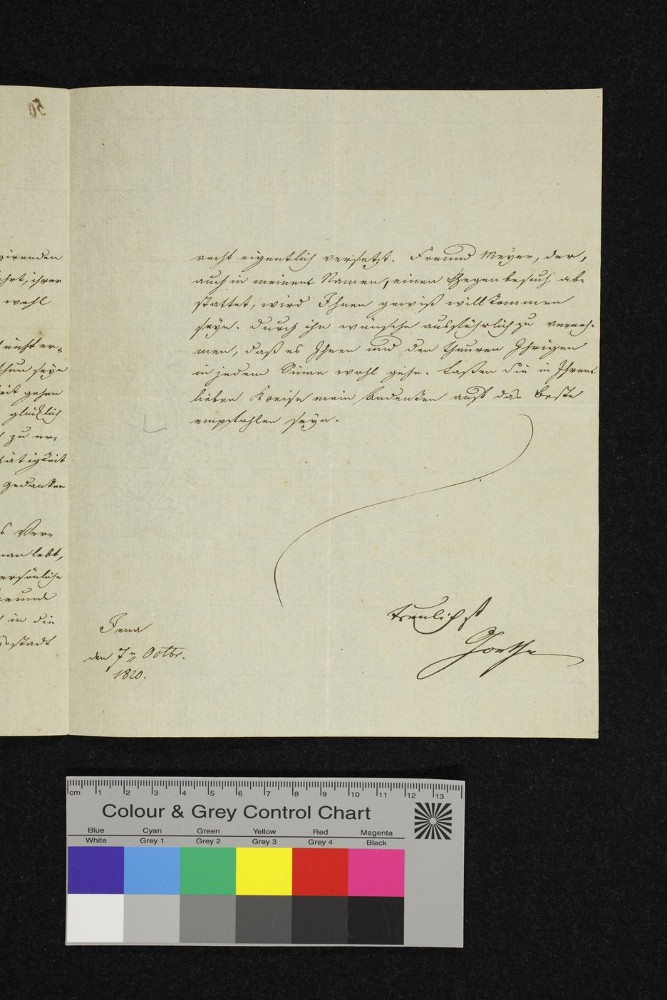 50
recht eigentlich versetzt. Freund Meyer, der,
auch in meinem Namen, einen Gegenbesuch ab-
stattet, wird Ihnen gewiß willkommen
seyn. Durch ihn wünsche ausführlich zu verneh-
men, daß es Ihnen und den theuren Ihrigen
in jedem Sinne wohl gehe. Laßen Sie in Ihrem
lieben Kreise mein Andenken aufs das beste
empfohlen seyn.
treulichst
Goethe
Jena
den 7n Octbr.
1820.
wohl
nicht er-
thun seyn
gehen
glücklich
zu er-
Gedanken
man lebt,
persönliche
in die
cm 1 2 3 4 5 6 7 8 9 10 11 12 13
Colour & Grey Control Chart
Blue Cyan Green Yellow Red Magenta
White Grey 1 Grey 2 Grey 3 Grey 4 Black